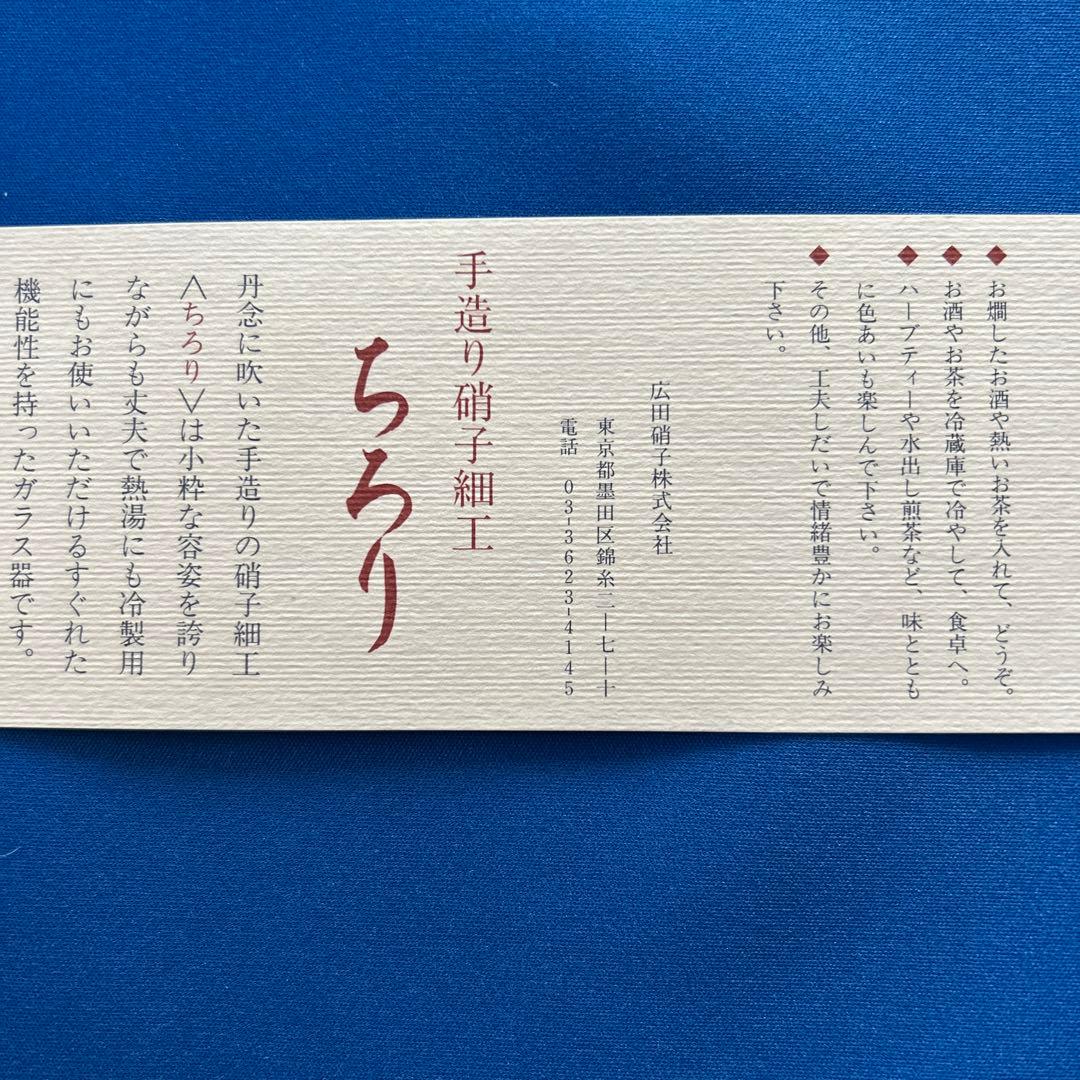 ◆お燗したお酒や熱いお茶を入れて、どうぞ。
◆お酒やお茶を冷蔵庫で冷やして、食卓へ。
◆ハーブティーや水出し煎茶など、味ととも
に色あいも楽しんで下さい。
◆その他、工夫しだいで情緒豊かにお楽しみ
下さい。
広田硝子株式会社
東京都墨田区錦糸二ー七ー十
電話 03-3623-4145
手造り硝子細工
ちろり
丹念に吹いた手造りの硝子細工
〈ちろり〉は小粋な容姿を誇り
ながらも丈夫で熱湯にも冷製用
にもお使いいただけるすぐれた
機能性を持ったガラス器です。